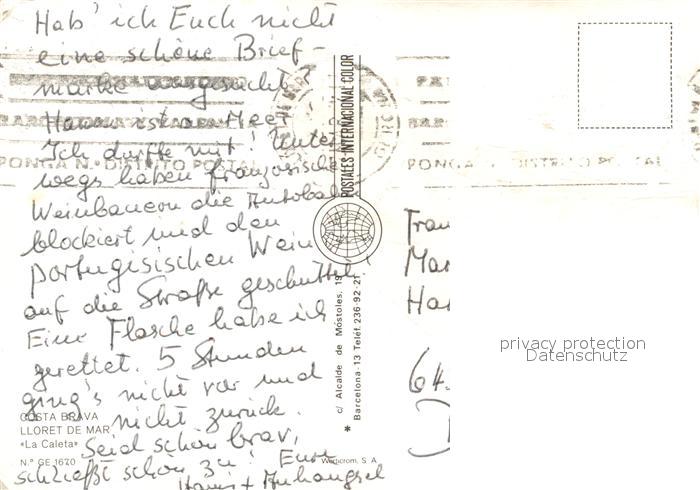 Hab' ich Euch nicht
eine schöne Brief-
marke ausgesucht?
ist am Meer
Ich durfte mit! Unter-
wegs haben französische
Weinbauern die Autobahn
blockiert und den
portugisischen Wein
auf die Straße geschüttelt
Eine Flasche habe ich
gerettet. 5 Stunden
ging's nicht vor und
nicht zurück.
Seid schön brav,
schließt schön zu! Eure
+ Anhängsel
PONGA N.º DISTRITO POSTAL
COSTA BRAVA
LLORET DE MAR
«La Caleta»
N.º GE 1670
POSTALES INTERNACIONAL COLOR
c/ Alcalde de Móstoles, 19
Barcelona-13 Teléf. 236-92-21
S. A.
PONGA N.º DISTRITO POSTAL
Fran
Mar
Ha
64
privacy protection
Datenschutz